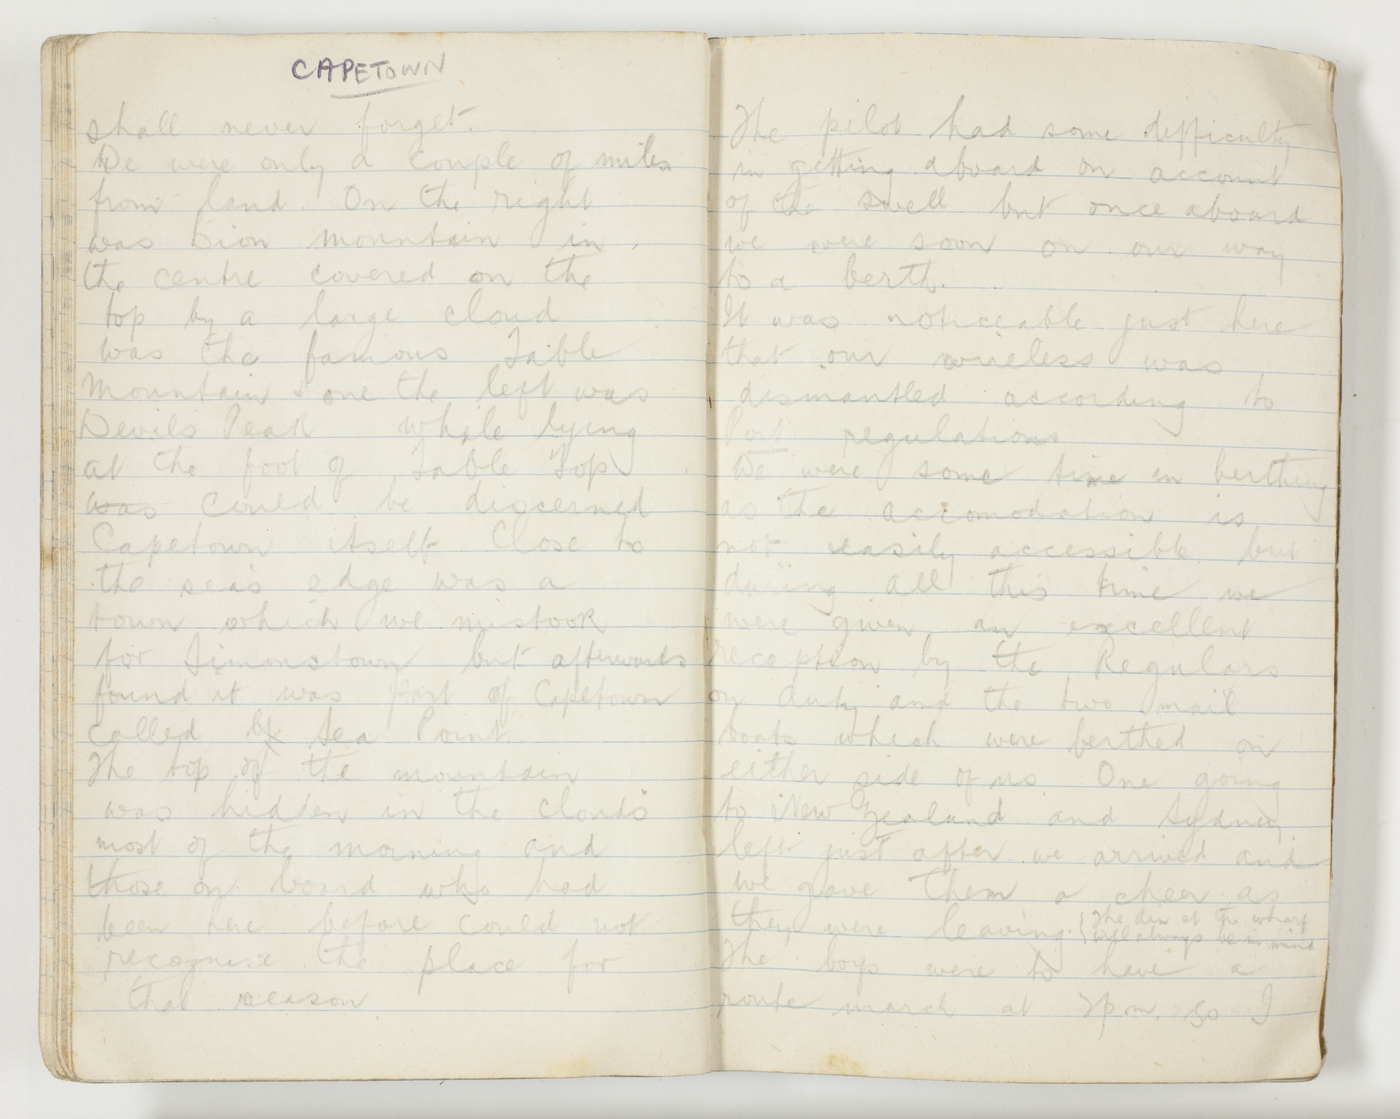 CAPETOWN
shall never forget.
We were only a couple of miles
from land. On the right
was Lion mountain in
the centre covered on the
top by a large cloud
was the famous Table
Mountain & one the left was
Devils Peak while lying
at the foot of Table Top
was could be discerned
Capetown itself Close to
the sea's edge was a
town which we mistook
for Simonstown but afterwards
found it was part of Capetown
called Sea Point.
The top of the mountain
was hidden in the clouds
most of the morning and
those on board who had
been here before could not
recognize the place for
that reason.
The pilot had some difficulty
in getting aboard on account
of the swell but once aboard
we were soon on our way
to a berth.
It was noticeable just here
that our wireless was
dismantled according to
Port regulations
We were some time in berthing
as the accomodation is
not easily accessible but
during all this time we
were given an excellent
reception by the Regulars
on duty and the two mail
boats which were berthed on
either side of us. One going
to New Zealand and Sydney
left just after we arrived and
we gave them a cheer as
they were leaving. (The din at the wharf
will always be in mind
The boys were to have a
route march at 2pm. so I